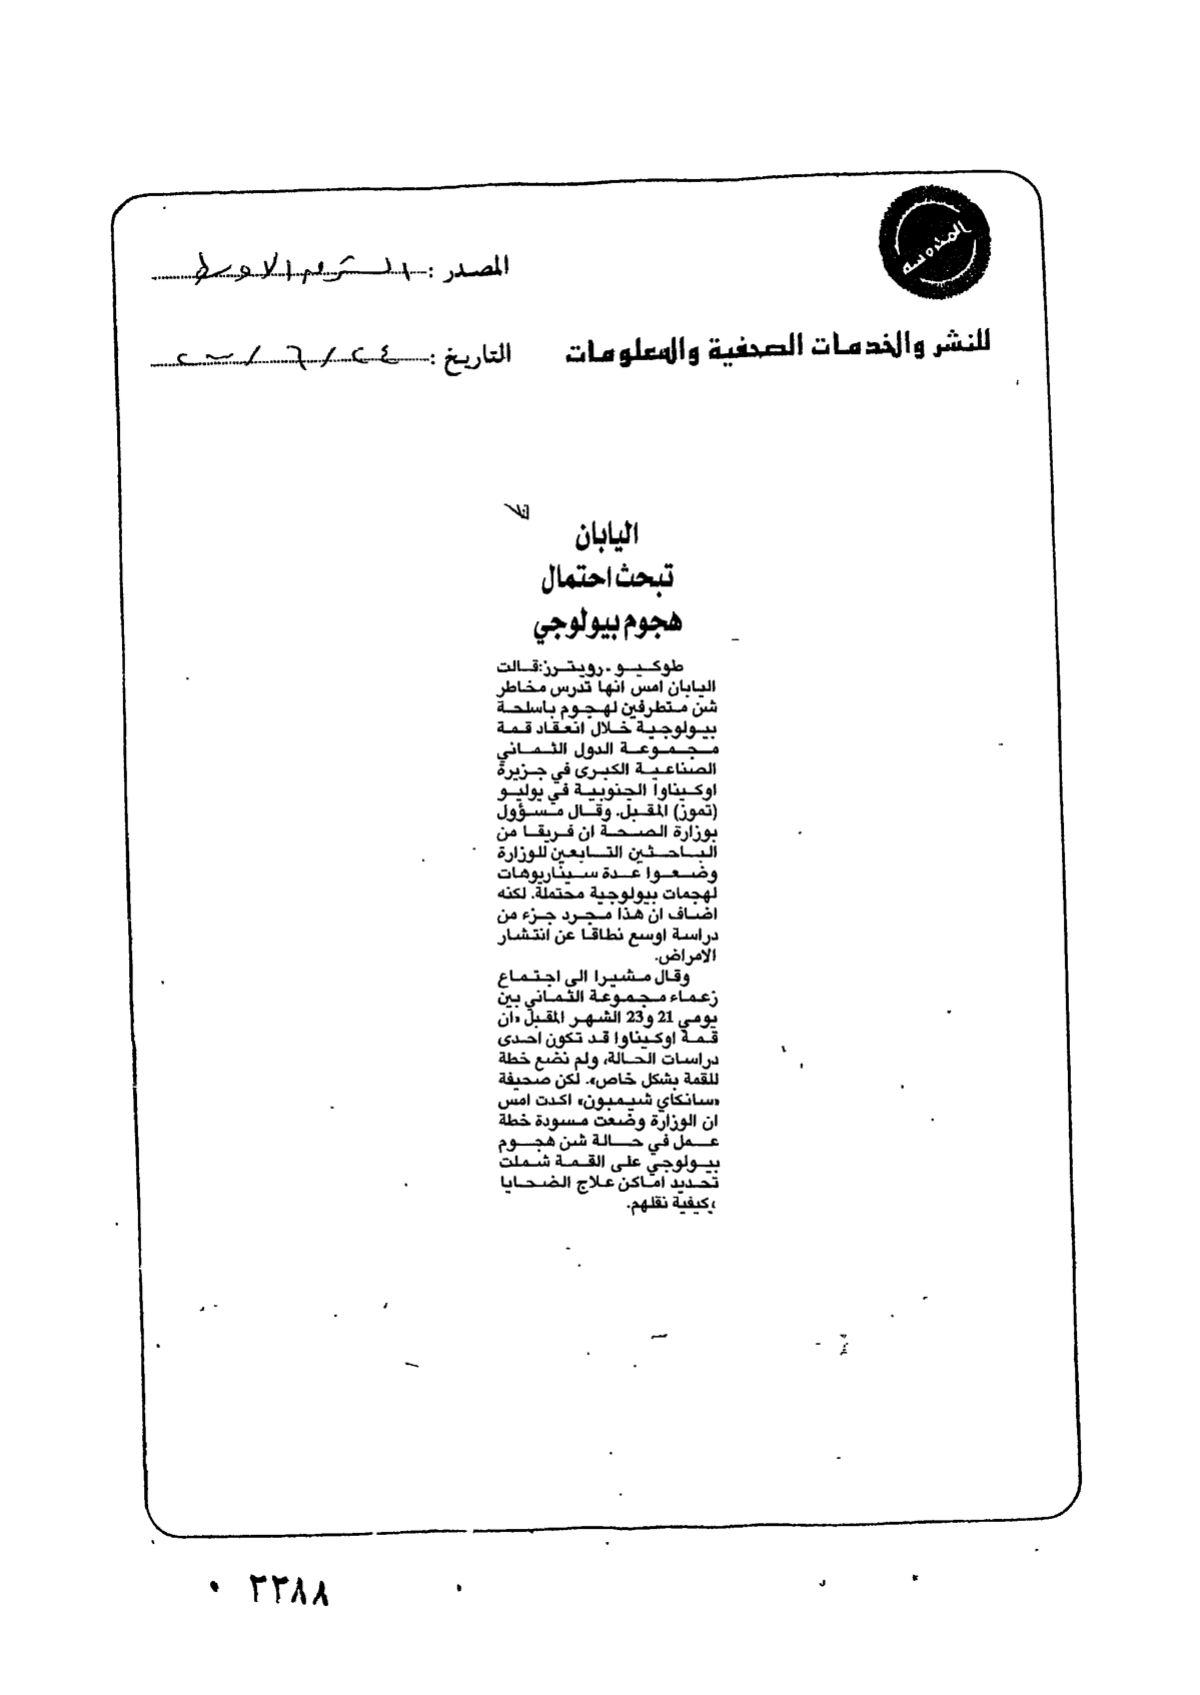 المدرسه
المصدر : الشرق الاوسط
للنشر والخدمات الصحفية والمعلومات
التاريخ : ٢٤ / ٦ /
اليابان
تبحث احتمال
هجوم بيولوجي
طوكيو - رويترز: قالت
اليابان امس انها تدرس مخاطر
شن متطرفين لهجوم باسلحة
بيولوجية خلال انعقاد قمة
مجموعة الدول الثماني
الصناعية الكبرى في جزيرة
اوكيناوا الجنوبية في يوليو
(تموز) المقبل. وقال مسؤول
بوزارة الصحة ان فريقا من
الباحثين التابعين للوزارة
وضعوا عدة سيناريوهات
لهجمات بيولوجية محتملة. لكنه
اضاف ان هذا مجرد جزء من
دراسة اوسع نطاقا عن انتشار
الامراض.
وقال مشيرا الى اجتماع
زعماء مجموعة الثماني بين
يومي 21 و23 الشهر المقبل «ان
قمة اوكيناوا قد تكون احدى
دراسات الحالة، ولم نضع خطة
للقمة بشكل خاص». لكن صحيفة
«سانكاي شيمبون» اكدت امس
ان الوزارة وضعت مسودة خطة
عمل في حالة شن هجوم
بيولوجي على القمة شملت
تحديد اماكن علاج الضحايا
وكيفية نقلهم.
٢٢٨٨